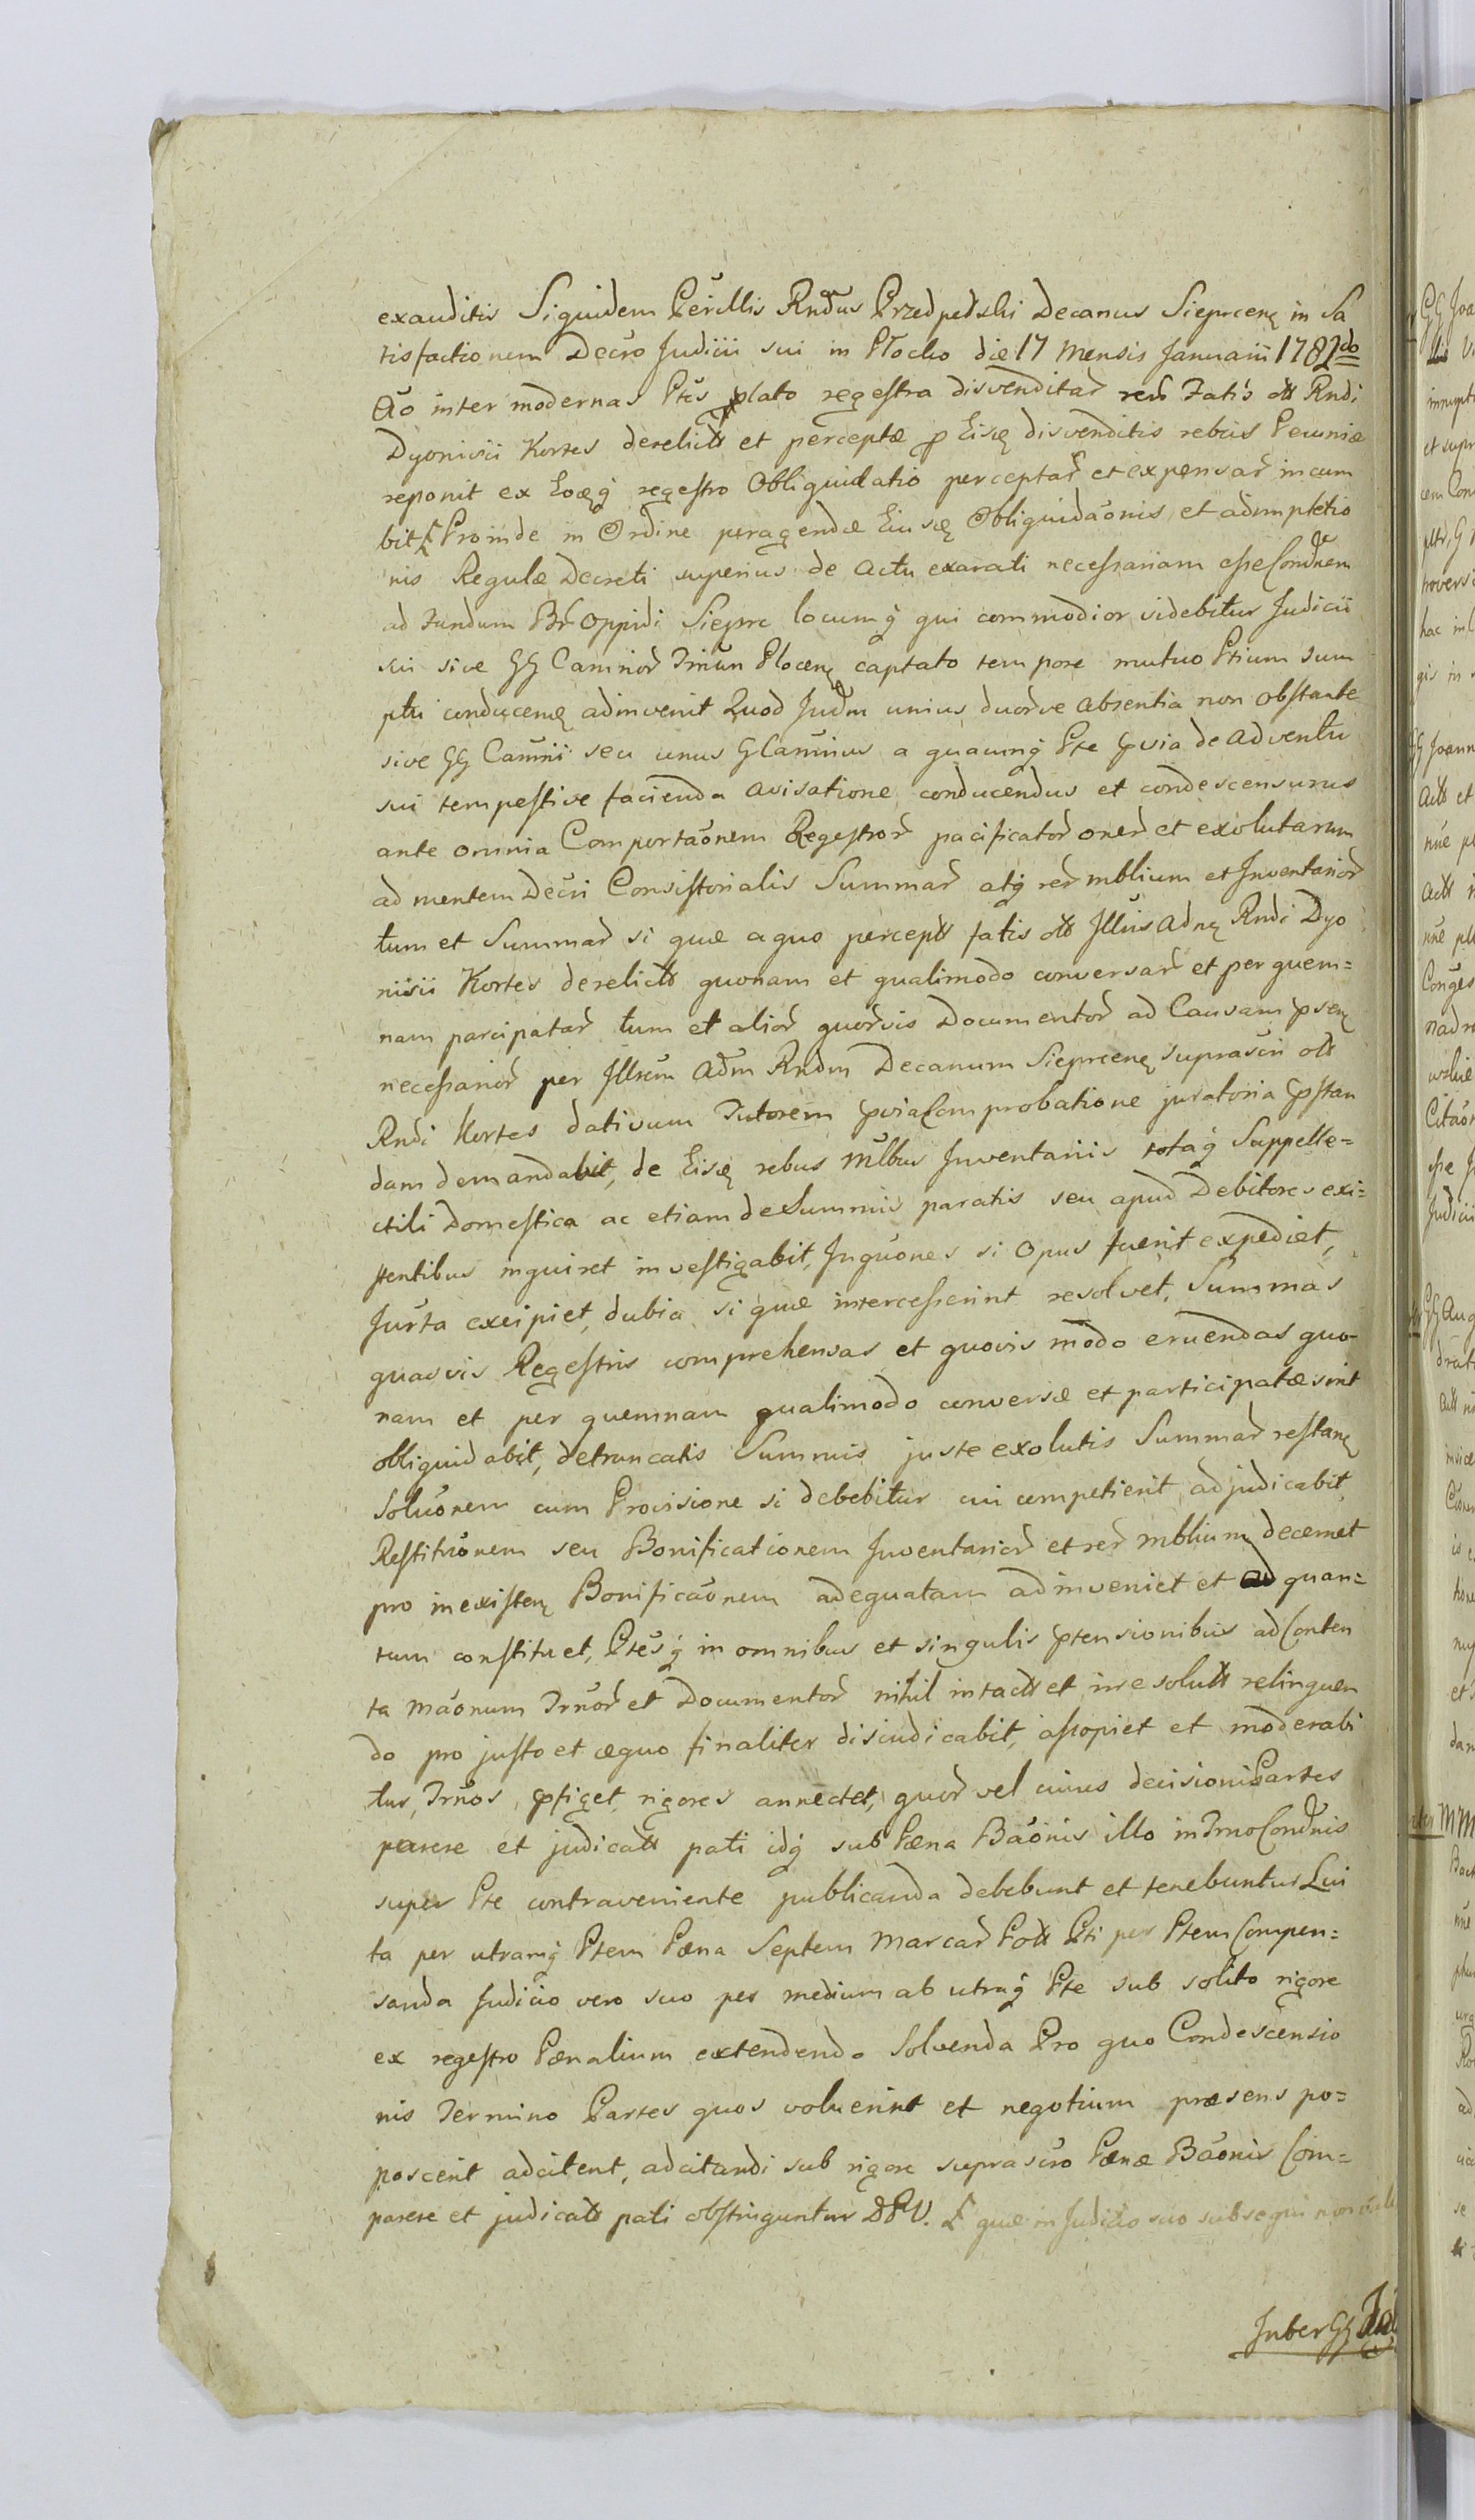 exauditis Siquidem Perillis Rndus Przedpełski Decanus Sieprcen in Sa
tisfactionem Decro Judicii sui in Płocko die 17 Mensis Januarii 1782do
Ao inter modernas Ptes plato regestra disvenditar rer Fatis olt Rndi
Dyonisii Kortes derelict et perceptæ p Eisq disvenditis rebus Pecuniæ
reponit ex Eoqq regestro Obliquidatio perceptar et expensar incum
bit Proinde in Ordine peragendæ Eiusq Obliquidaonis et adimpletio
nis Regulæ Decreti superius de Actu exarati necessariam esse Condnem
ad Fundum Br Oppidi Sieprc locumq qui commodior videbitur Judicii
sui sive GG Camrior Trium Plocen captato tempore mutuo Ptium sum
ptu conducens adinvenit Quod Judm unius duorve absentia non obstante
sive GG Camrii seu unus G Camrius a quacunq Pte pvia de adventu
sui tempestive facienda avisatione conducendus et condescensurus
ante omnia Comportaonem Regestror pacificator oner et exolutarum
ad mentem Decri Consistorialis Summar atq rer mblium et Inventarior
tum et Summar si quæ a quo percept fatis olt Illris Adm Rndi Dyo
nisii Kortes derelict quonam et qualimodo conversar et per quem=
nam parcipatar tum et alior quorvis Documentor ad Causam psen
necessarior per Illrem Adm Rndm Decanum Sieprcen suprascri olt
Rndi Kortes dativum Tutorem pvia Comprobatione juratoria pstan
dam demandabit, de Eisq rebus Mlbus Inventariis totaq Suppelle=
ctili Domestica ac etiam de Summis paratis seu apud Debitores exi=
stentibus inquiret investigabit, Inquones si Opus fuerit expediet,
Jurta excipiet, dubia si quæ intercesserint resolvet, Summas
quasvis Regestris comprehensas et quovis modo eruendas quo-
nam et per quemnam qualimodo conversæ et participatæ sint
obliquidabit, detruncatis Summis juste exolutis Summar restan
Soluonem cum Provisione si debebitur cui competierit adjudicabit
Restituonem seu Bonificationem Inventarior et rer mblium decernet
pro inexisten Bonificaonem adequatam adinveniet et ad quan=
tum constituet, Ptesq in omnibus et singulis ptensionibus ad Conten
ta Maonum Trnor et Documentor nihil intact et irresolut relinquen
do pro justo et æquo finaliter disiudicabit, assopiet et moderabi
tur, Trnos pfiget rigores annectet, quor vel cuius decisioni Partes
parere et judicat pati idq sub Pæna Baonis illo in Trno Condnis
super Pte contraveniente publicanda debebunt et tenebuntur Lui
ta per utramq Ptem Pæna Septem Marcar Polt Pti per Ptem Compen=
sanda Judicio vero suo per medium ab utraq Pte sub solito rigore
ex regestro Pænalium extendendo Solvenda Pro quo Condescensio
nis Termino Partes quos voluerint et negotium præsens po=
poscerit adcitent, adcitandi sub rigore suprascro Pænæ Baonis Com=
parere et judicat pati obstringuntur DPV. quæ in Judicio suo subsequi non
Inter GG